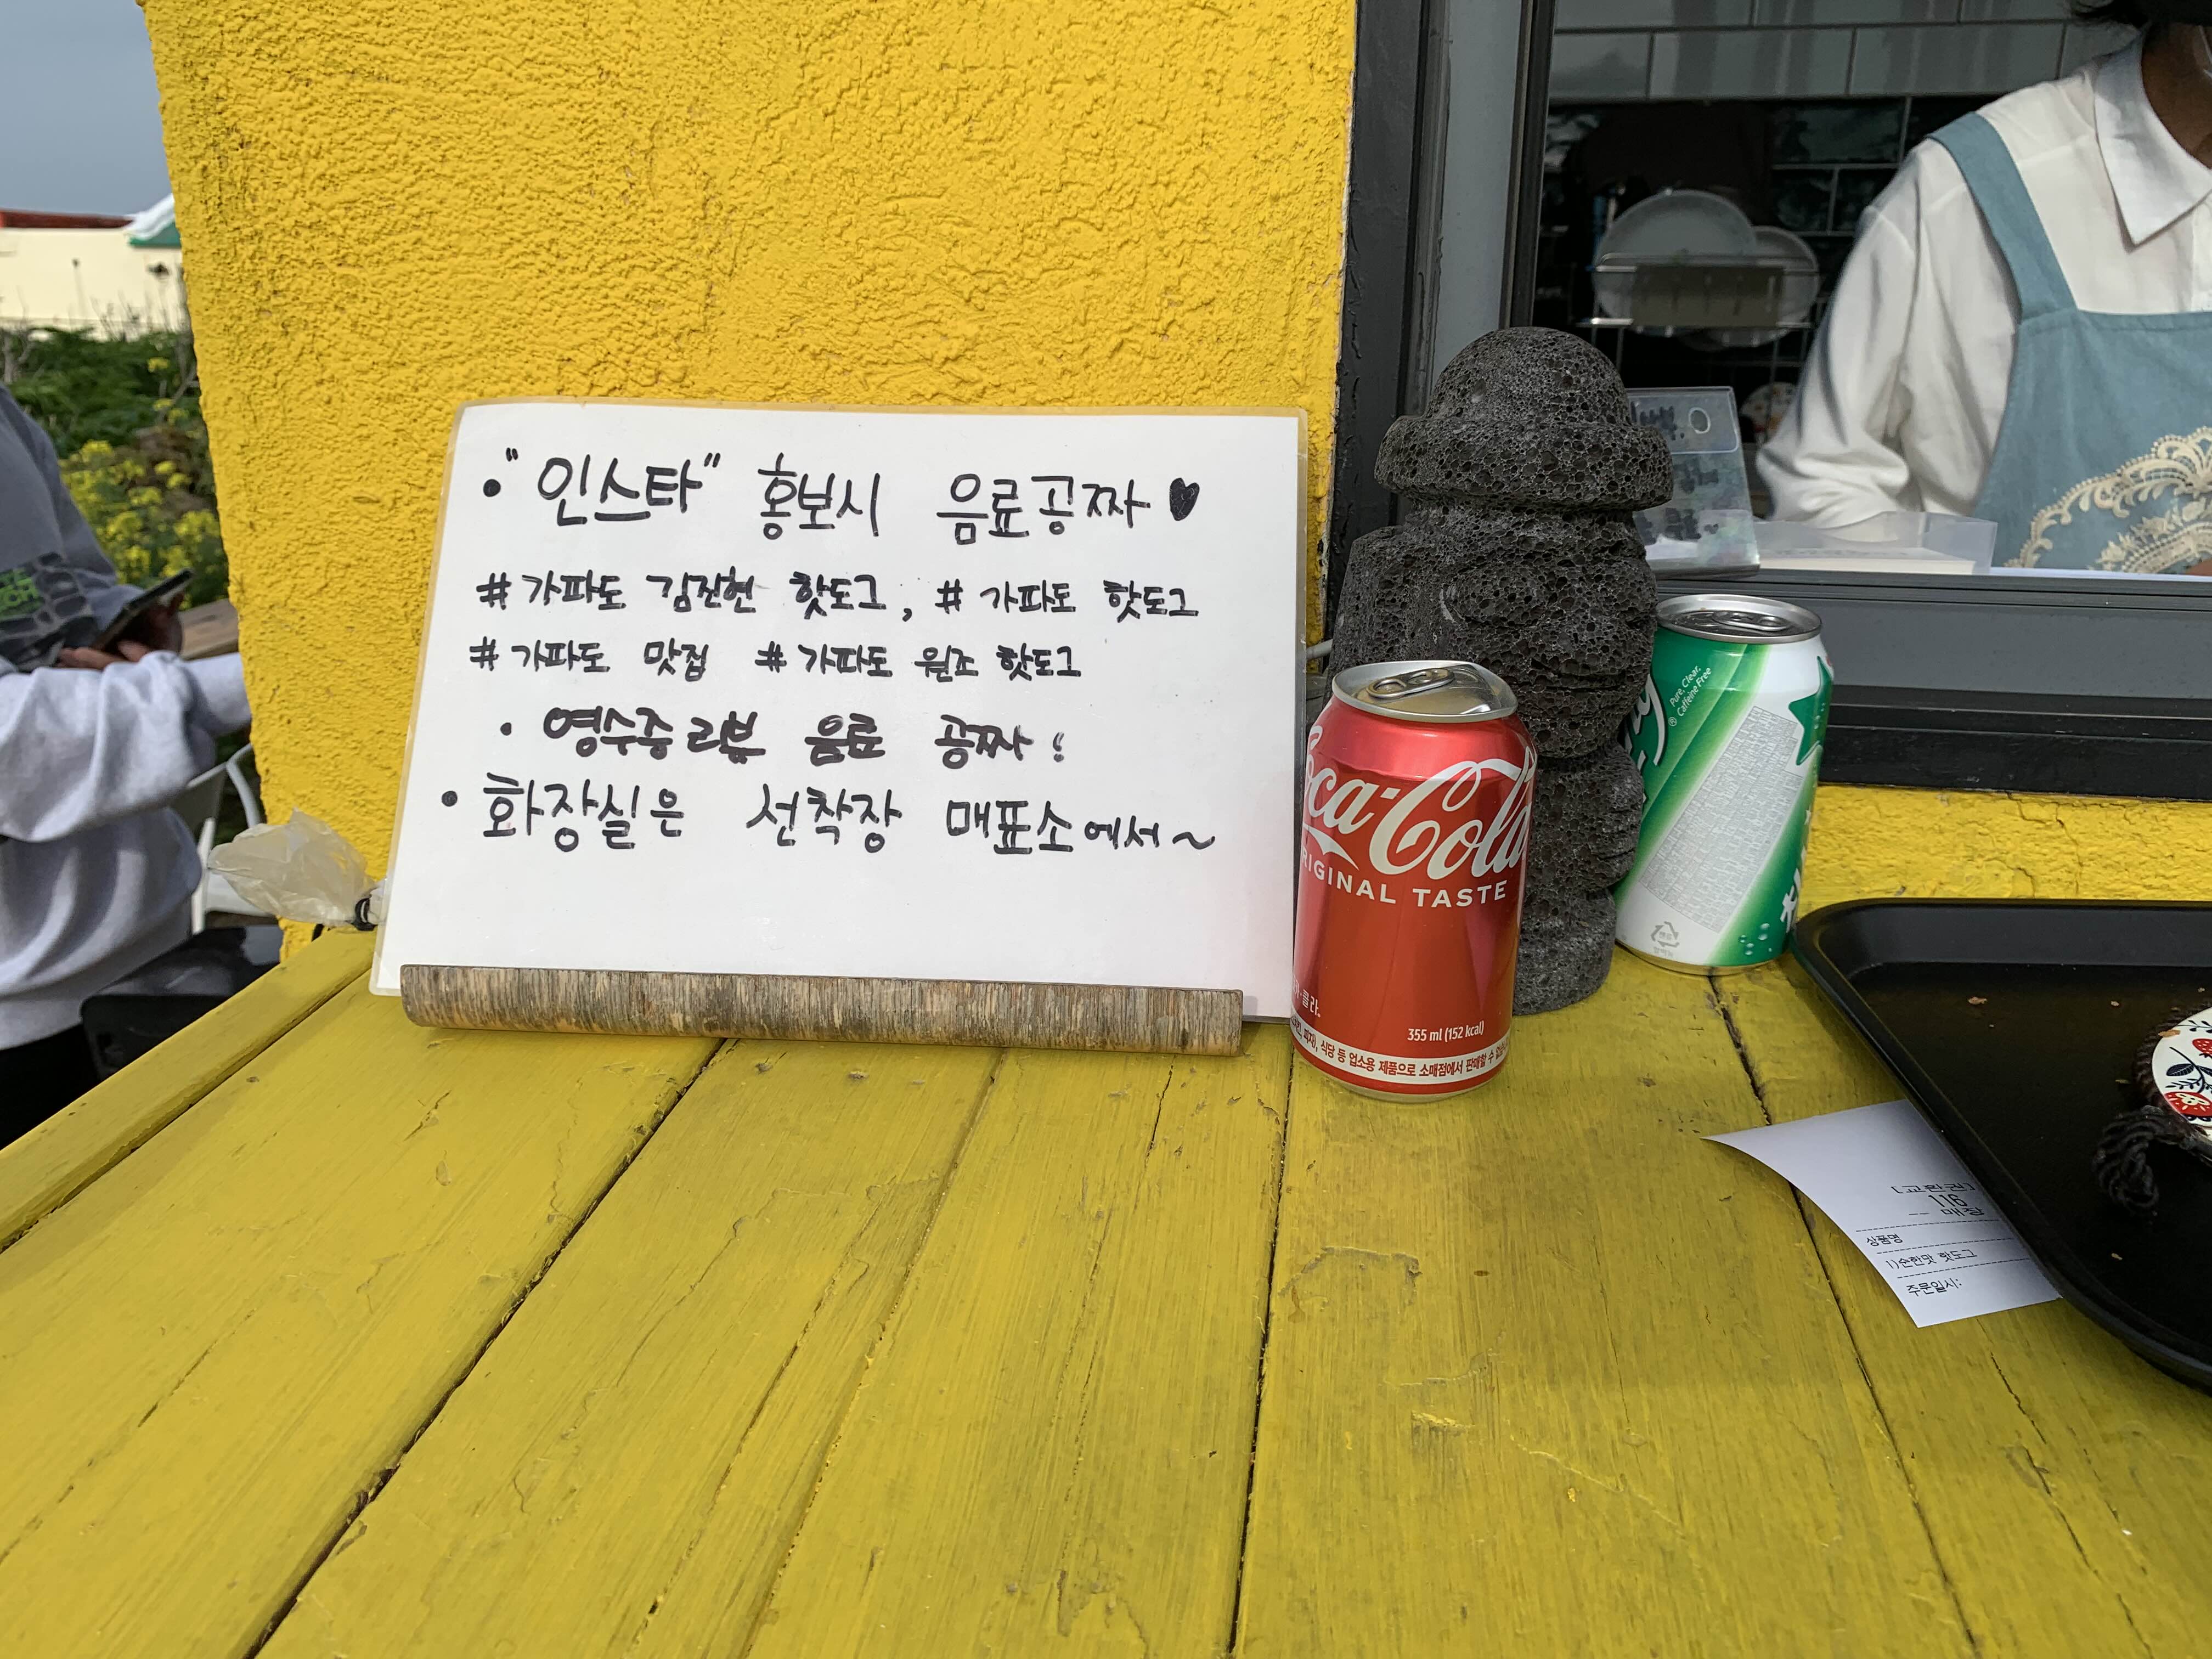 • "인스타" 홍보시 음료공짜 ♥
# 가파도 김진현 핫도그, # 가파도 핫도그
# 가파도 맛집 # 가파도 원조 핫도그
• 영수증 리뷰 음료 공짜!
• 화장실은 선착장 매표소에서~
Coca-Cola
ORIGINAL TASTE
355 ml (152 kcal)
식당 등 업소용 제품으로 소매점에서 판매할 수
Pure, Clear,
Caffeine Free
[교환권]
116
매장
상품명
1)순한맛 핫도그
주문일시: